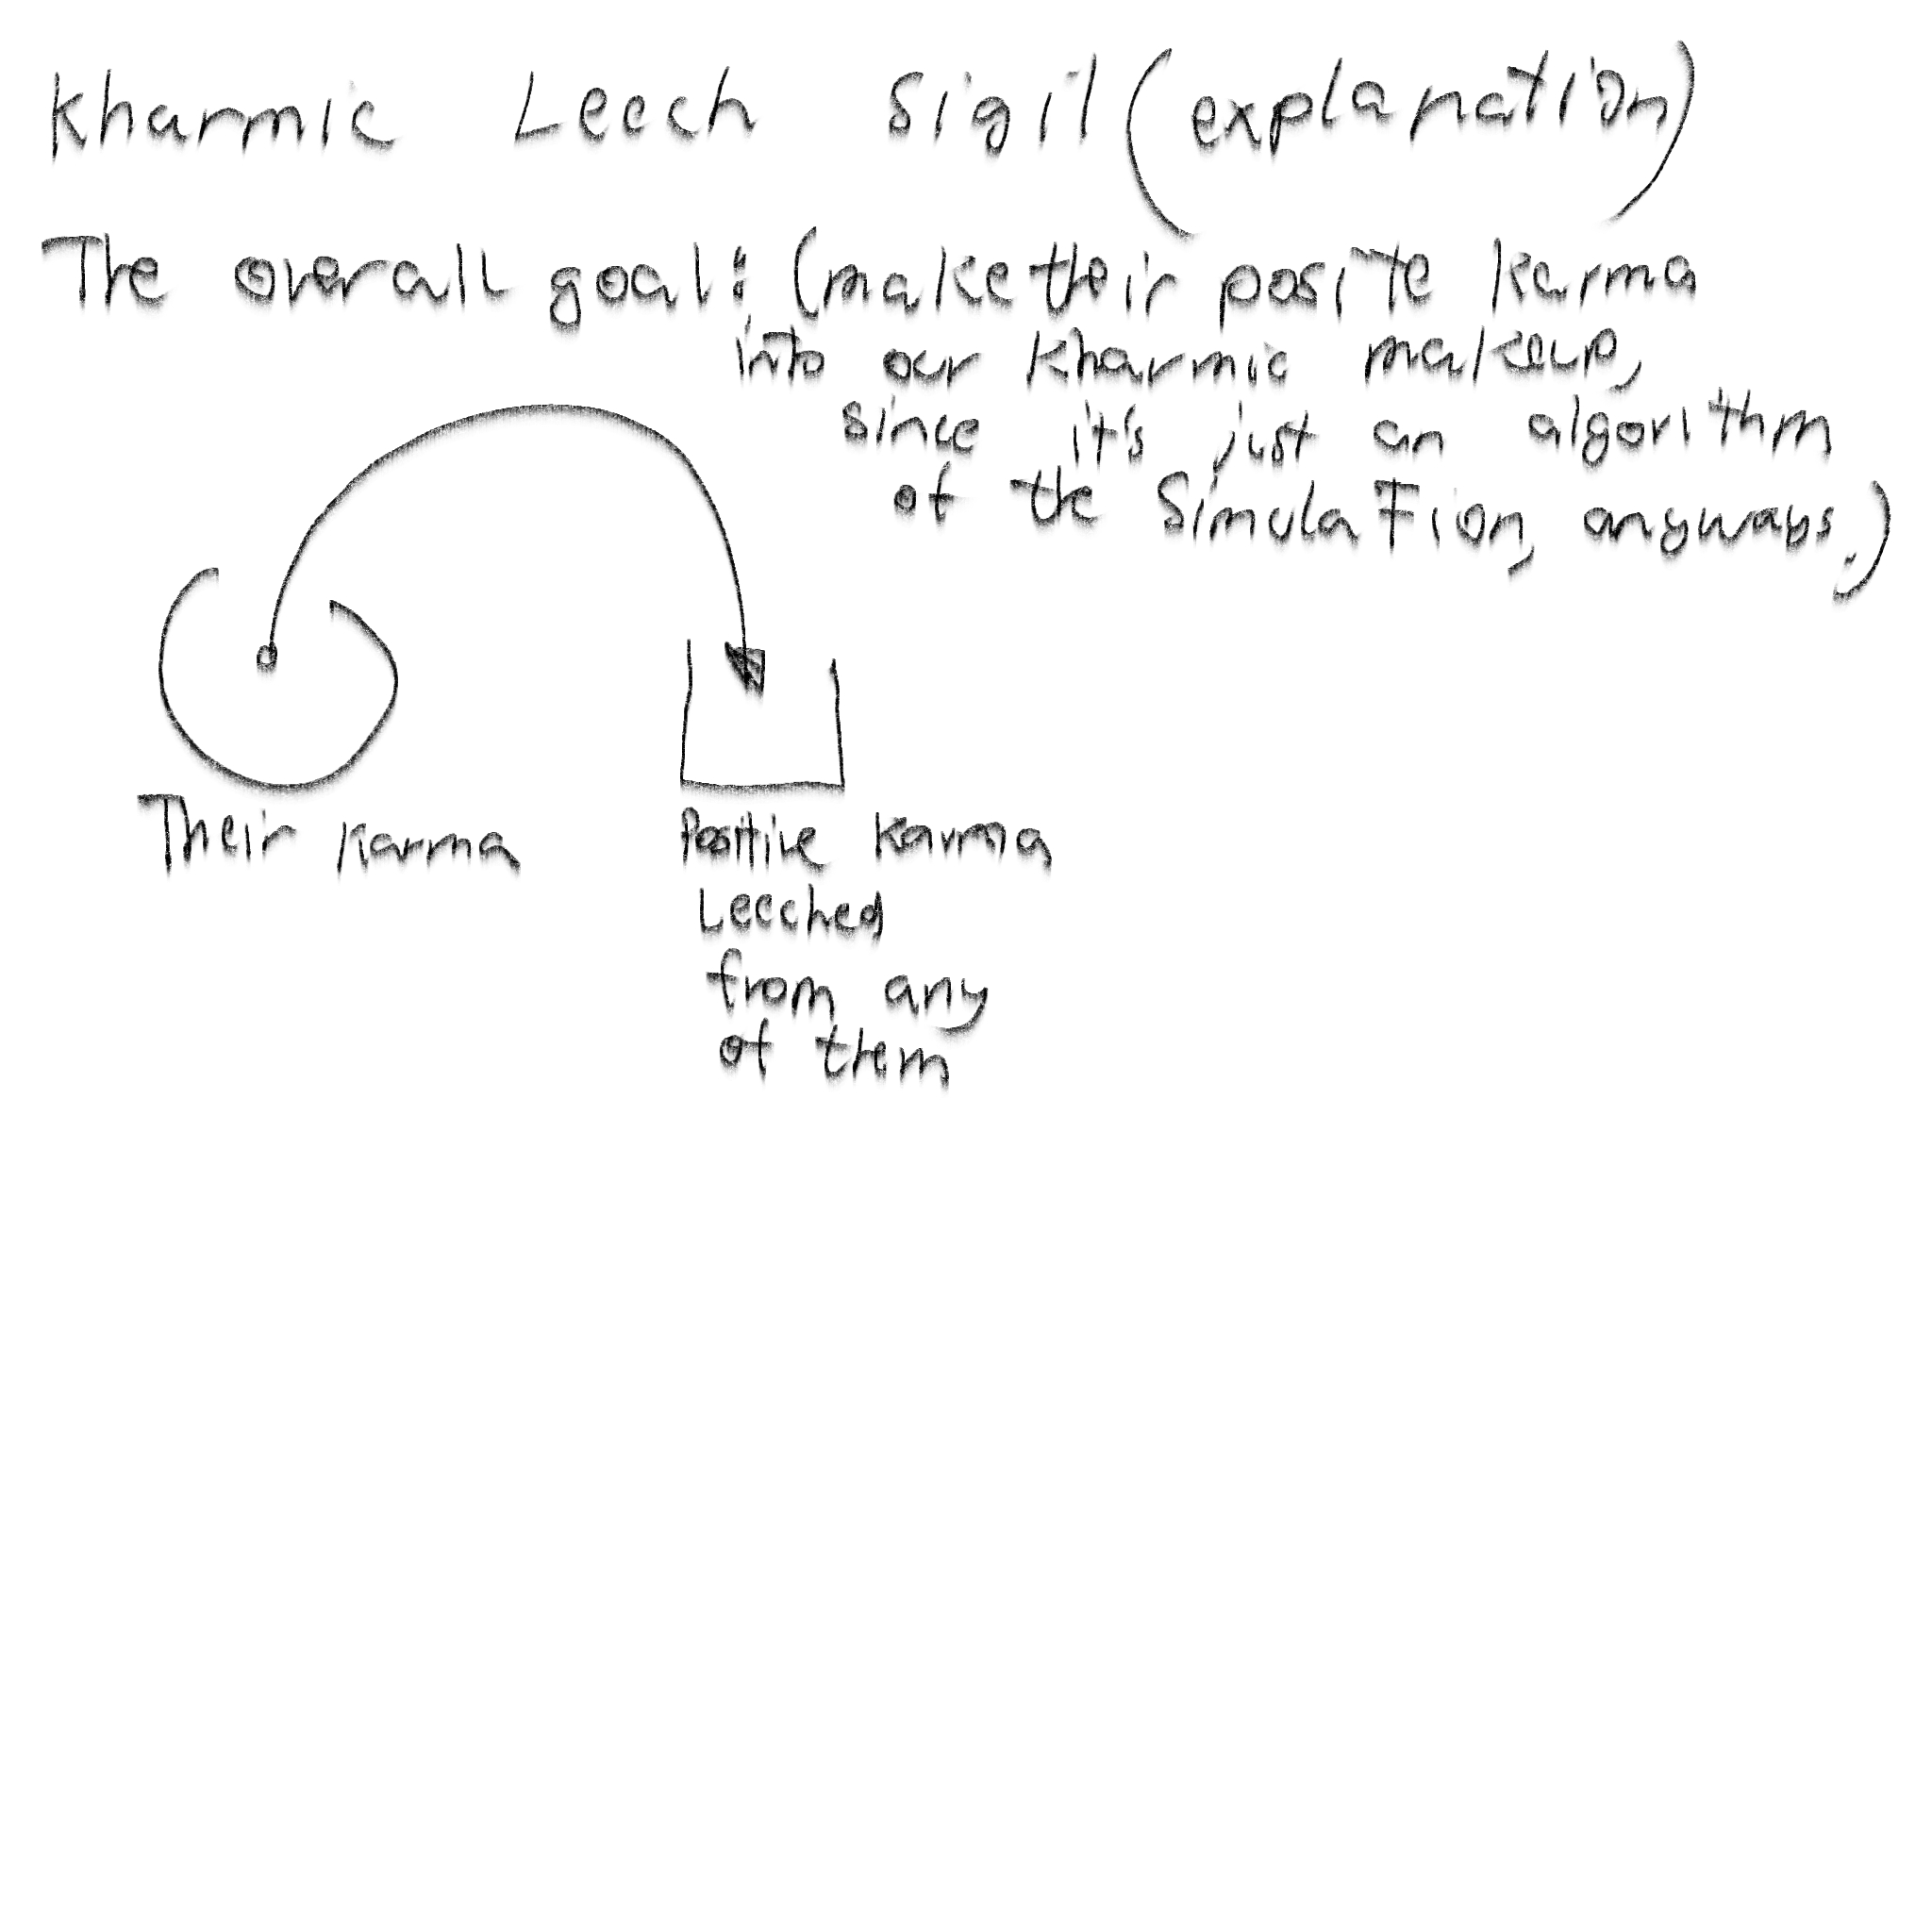 Kharmic Leech Sigil (explanation)
The overall goal: (make their posite karma
into our Kharmic makeup,
since it's just an algorithm
of the Simulation, anyways.)
Their Karma
Positive Karma
Leeched
from any
of them